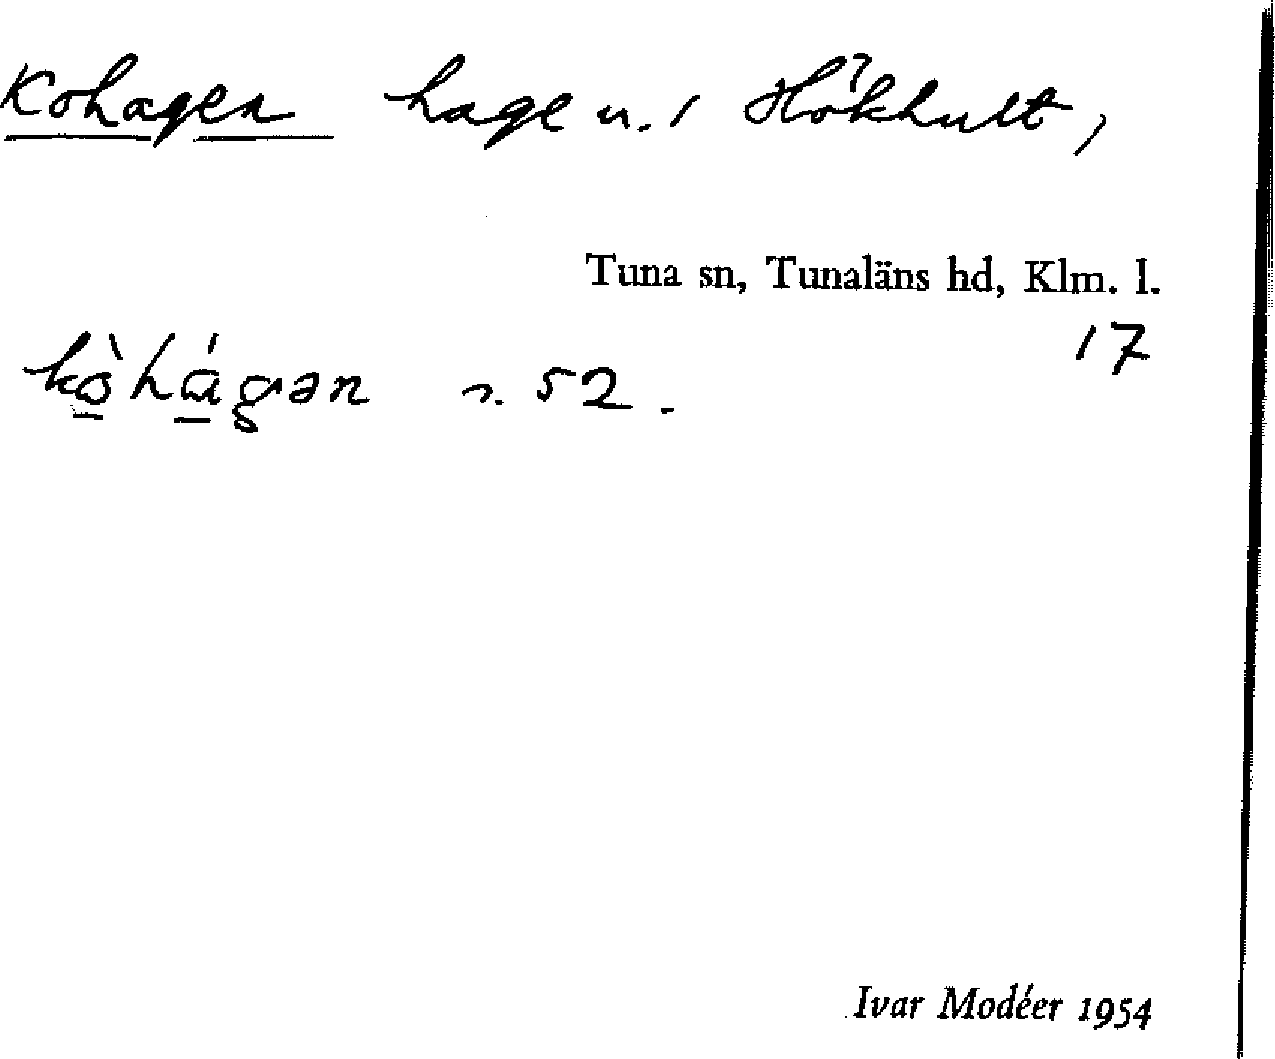 Kohagen hage u. / Hökhult,
Tuna sn, Tunaläns hd, Klm. l.
17
kòhágən n. 52.
Ivar Modéer 1954